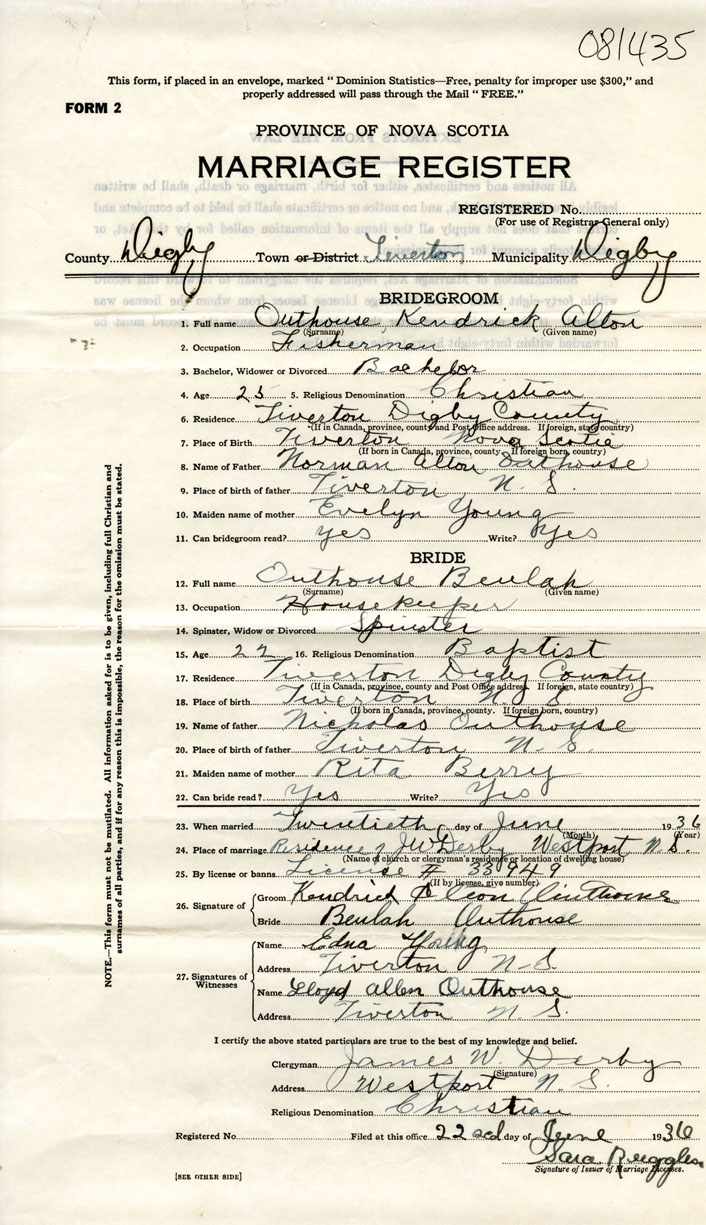 081435
This form, if placed in an envelope, marked "Dominion Statistics—Free, penalty for improper use $300," and
properly addressed will pass through the Mail "FREE."
FORM 2
PROVINCE OF NOVA SCOTIA
MARRIAGE REGISTER
REGISTERED No.
(For use of Registrar General only)
County Digby Town or District Tiverton Municipality Digby
BRIDEGROOM
1. Full name Outhouse, Kendrick Alton
(Surname) (Given name)
2. Occupation Fisherman
3. Bachelor, Widower or Divorced Bachelor
4. Age 25 5. Religious Denomination Christian
6. Residence Tiverton Digby County
(If in Canada, province, county and Post Office address. If foreign, state country)
7. Place of Birth Tiverton Nova Scotia
(If born in Canada, province, county. If foreign born, country)
8. Name of Father Norman Alton Outhouse
9. Place of birth of father Tiverton N. S
10. Maiden name of mother Evelyn Young
11. Can bridegroom read? yes Write? Yes
BRIDE
12. Full name Outhouse Beulah
(Surname) (Given name)
13. Occupation Housekeeper
14. Spinster, Widow or Divorced Spinster
15. Age 22 16. Religious Denomination Baptist
17. Residence Tiverton Digby County
(If in Canada, province, county and Post Office address. If foreign, state country)
18. Place of birth Tiverton N. S
(If born in Canada, province, county. If foreign born, country)
19. Name of father Nicholas Outhouse
20. Place of birth of father Tiverton N. S.
21. Maiden name of mother Rita Berry
22. Can bride read? Yes Write? Yes
23. When married Twentieth day of June 1936
(Month) (Year)
24. Place of marriage Residence of J W Derby Westport N. S.
(Name of church or clergyman's residence or location of dwelling house)
25. By license or banns License # 33949
(If by license, give number)
26. Signature of
Groom Kendrick Outhouse
Bride Beulah Outhouse
27. Signatures of Witnesses
Name Edna Young
Address Tiverton N-S.
Name Lloyd Allen Outhouse
Address Tiverton N. S.
I certify the above stated particulars are true to the best of my knowledge and belief.
Clergyman James W. Derby
(Signature)
Address Westport N. S.
Religious Denomination Christian
Registered No. Filed at this office 22 day of June 1936
Sara Ruggles
Signature of Issuer of Marriage Licenses.
[SEE OTHER SIDE]
NOTE.—This form must not be mutilated. All information asked for is to be given, including full Christian and
surnames of all parties, and if for any reason this is impossible, the reason for the omission must be stated.